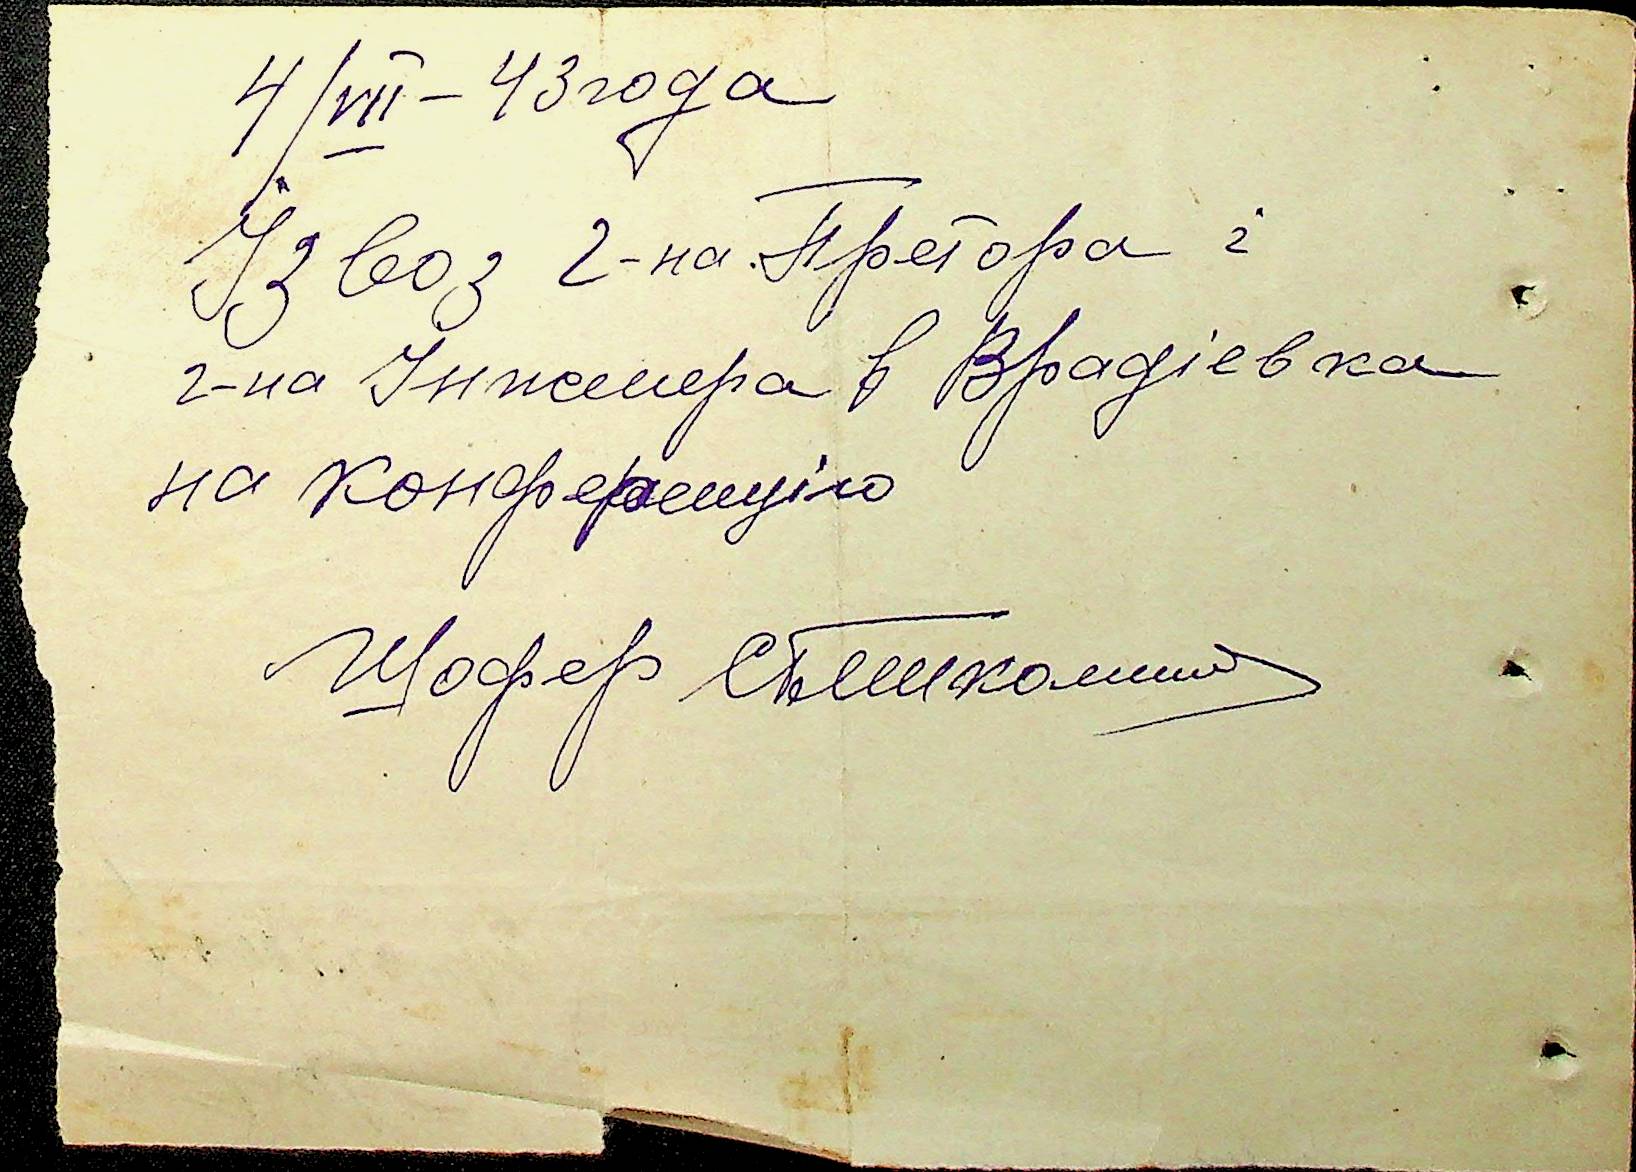 4/VII – 43 года
Їзвоз г-на Претора і
г-на Інженера в Врадіевка
на конференцію
Шофер